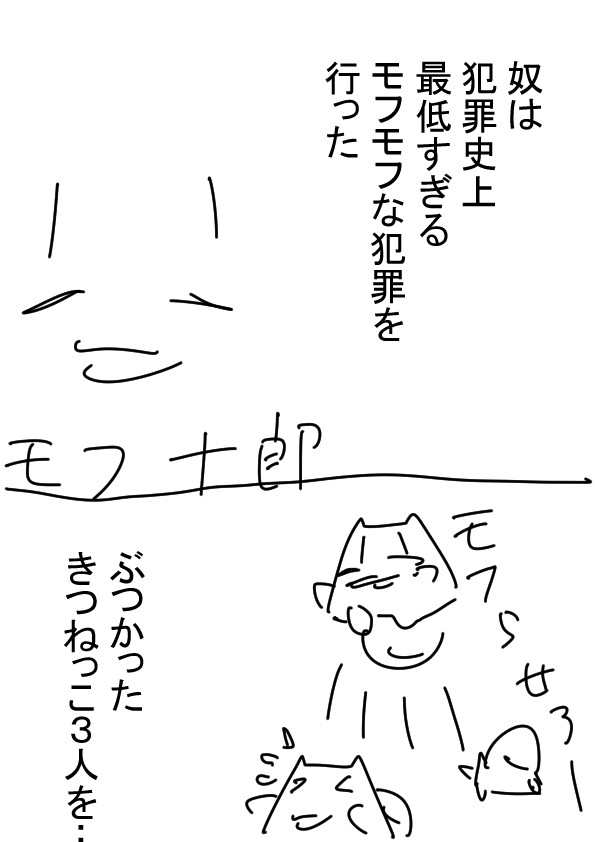 奴は
犯罪史上
最低すぎる
モフモフな犯罪を
行った
モフ十郎
モフらせろー
ぶつかった
きつねっこ３人を…